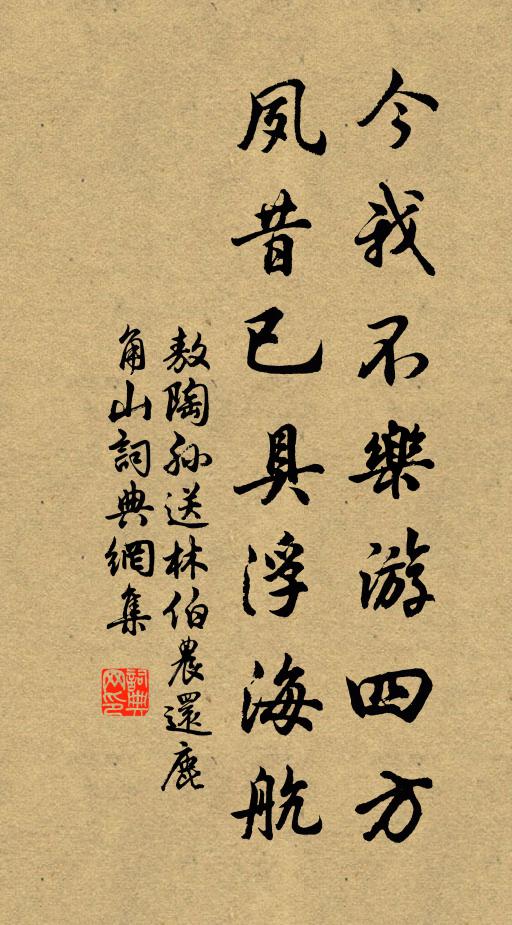 今我不樂游四方
夙昔已具浮海航
敖陶孫送林伯農還鹿
角山詞典網集
詞典
网印